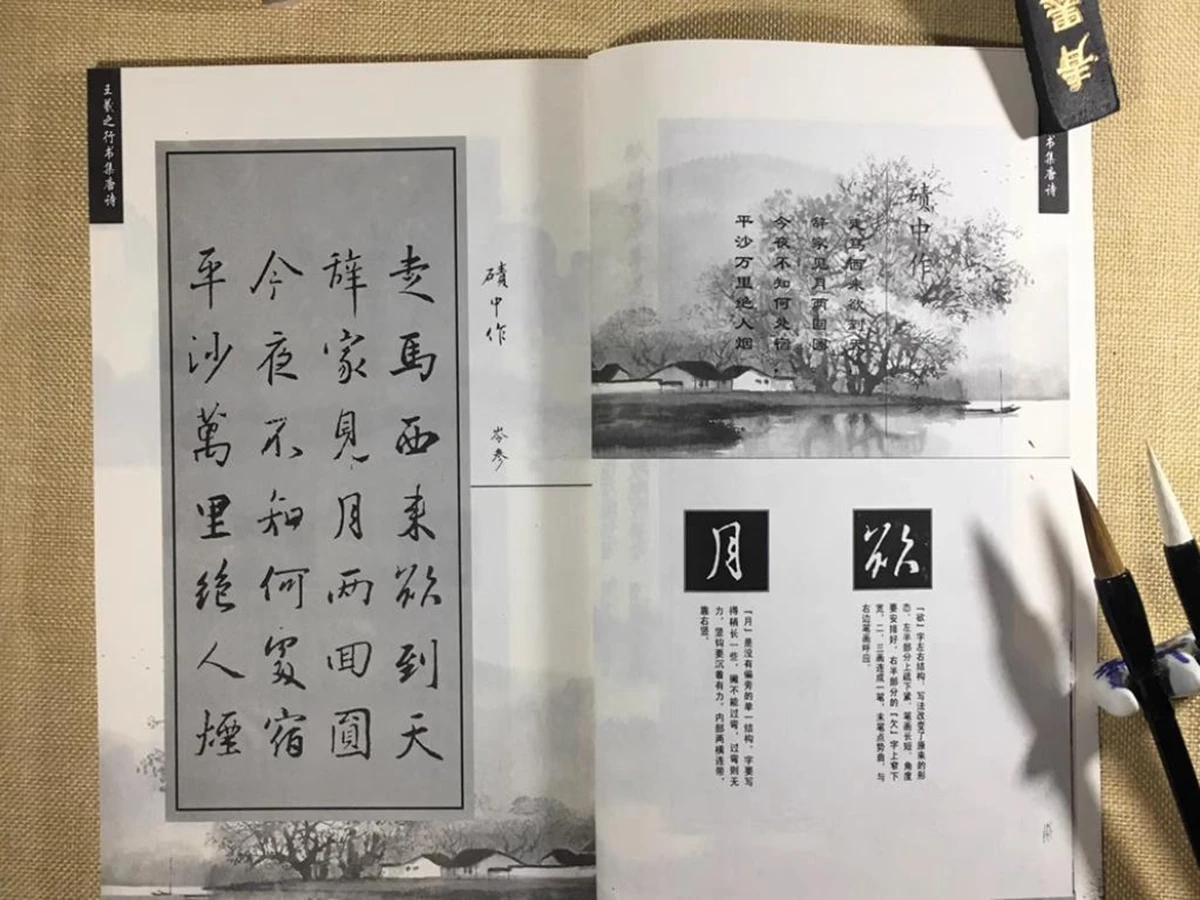 王羲之行书集唐诗
磧中作
岑参
走馬西来欲到天
辞家見月两回圓
今夜不知何處宿
平沙萬里絶人煙
书集唐诗
碛中作
走马西来欲到天
辞家见月两回圆
今夜不知何处宿
平沙万里绝人烟
欲
「欲」字左右结构，写法改变了原来的形
态，左半部分上疏下紧，笔画长短、角度
要安排好，右半部分的「欠」字上窄下
宽，二、三画连成一笔，末笔点势曲，与
右边笔画呼应。
月
「月」是没有偏旁的单一结构，字要写
得稍长一些，撇不能过弯，过弯则无
力，竖钩要沉着有力，内部两横连带，
靠右竖。
青墨